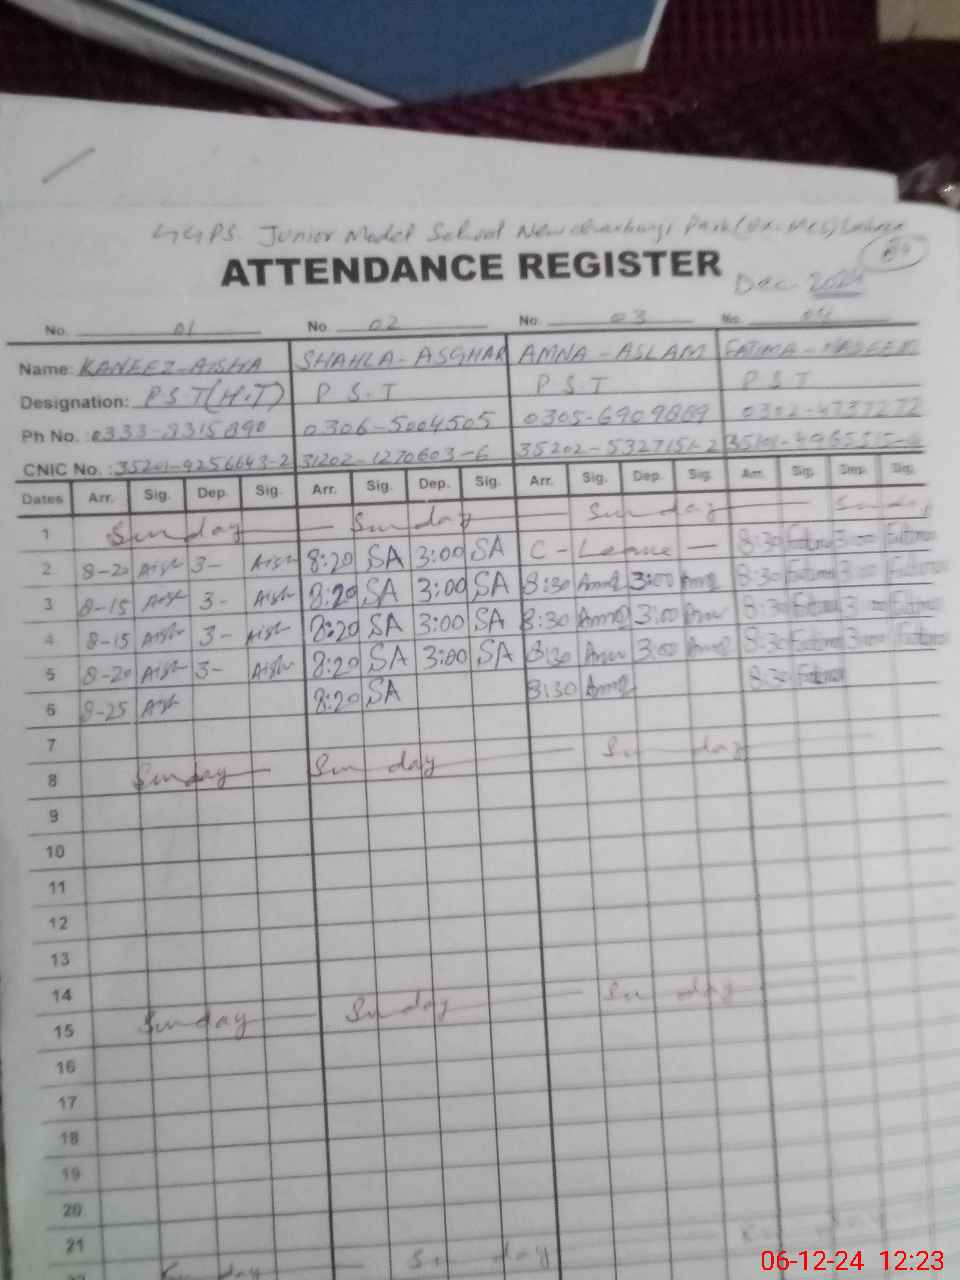 GGPS. Junior Model School New Park
ATTENDANCE REGISTER
Dec 2024
No. 01 No. 02 No. 03 No. 04
Name: KANEEZ-AISHA SHAHLA-ASGHAR AMNA-ASLAM FATIMA-NASEEM
Designation: P S T (H.T) P S.T P S T P S T
Ph No.: 0333-8315890 0306-5004505 0305-6909889 0302-4737272
CNIC No.: 35201-9256643-2 31202-1270603-6 35202-5327151-2
Dates Arr. Sig. Dep. Sig. Arr. Sig. Dep. Sig. Arr. Sig. Dep. Sig. Arr. Sig. Dep. Sig.
1 Sunday Sunday Sunday Sunday
2 8-20 Aish 3- Aish 8:20 SA 3:00 SA C-Leave 8:30 Fatima 3:00 Fatima
3 8-15 Aish 3- Aish 8:20 SA 3:00 SA 8:30 Amna 3:00 Amna 8:30 Fatima 3:00 Fatima
4 8-15 Aish 3- Aish 8:20 SA 3:00 SA 8:30 Amna 3:00 Amna 8:30 Fatima 3:00 Fatima
5 8-20 Aish 3- Aish 8:20 SA 3:00 SA 8:30 Amna 3:00 Amna 8:30 Fatima 3:00 Fatima
6 8-25 Aish 8:20 SA 8:30 Amna 8:30 Fatima
7
8 Sunday Sunday Sunday
9
10
11
12
13
14
15 Sunday Sunday Sunday
16
17
18
19
20
21
Sunday Sunday Sunday
06-12-24 12:23